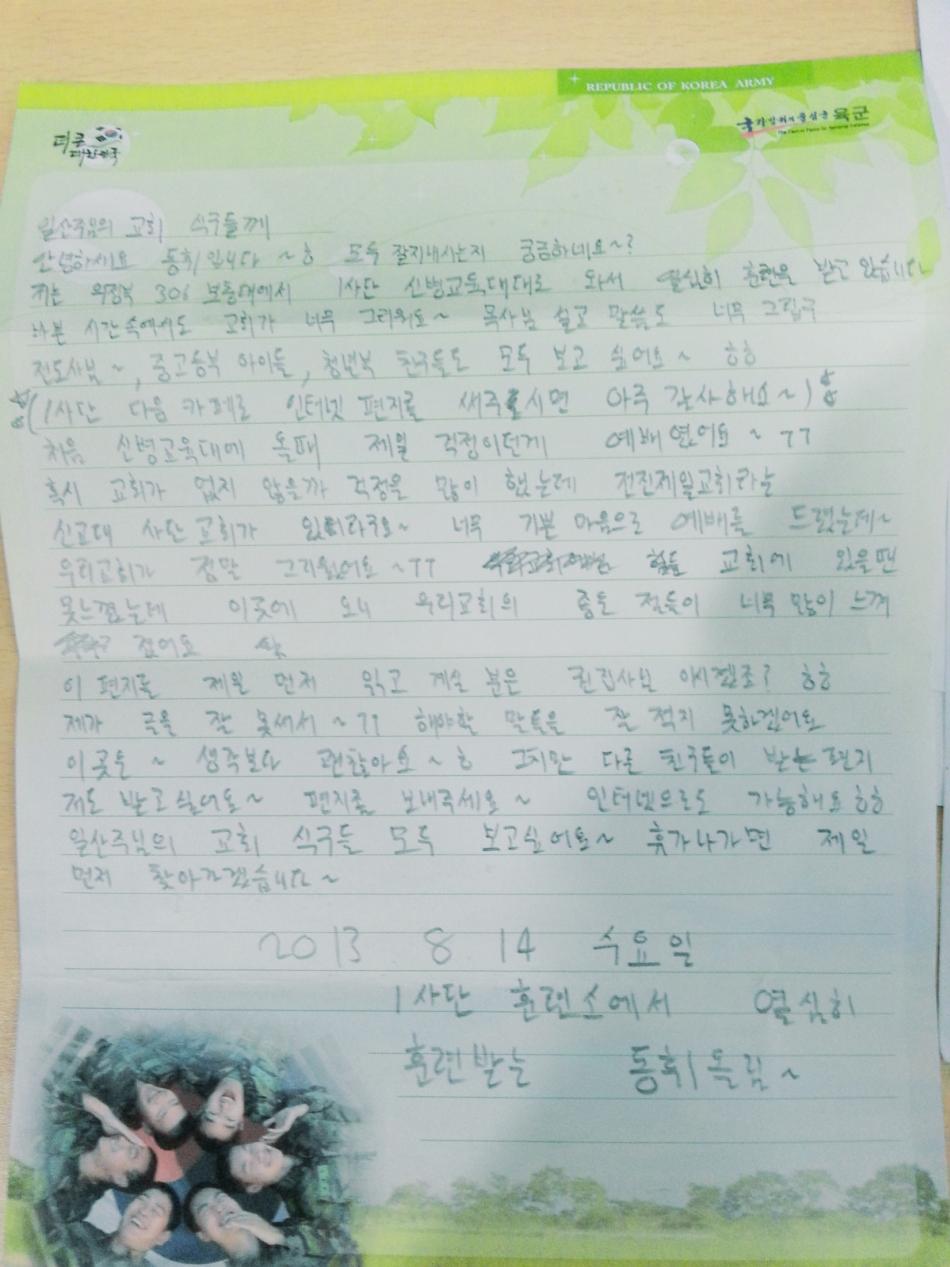 REPUBLIC OF KOREA ARMY
더 큰
대한민국
육군
일산주님의 교회 식구들께
안녕하세요 동휘 입니다 ~ㅎ 모두 잘지내시는지 궁금하네요~?
저는 의정부 306 보충대에서 1사단 신병교육대대로 와서 열심히 훈련을 받고 있습니다
바쁜 시간속에서도 교회가 너무 그리워요~ 목사님 설교 말씀도 너무 그립구
전도사님~, 중고등부 아이들, 청년부 친구들도 모두 보고 싶어요~ ㅎㅎ
(1사단 다음 카페로 인터넷 편지를 써주시면 아주 감사해요~)
처음 신병교육대에 올때 제일 걱정이던게 예배였어요~ ㅠㅠ
혹시 교회가 없지 않을까 걱정을 많이 했는데 전진제일교회라는
신교대 사단교회가 있더라구요~ 너무 기쁜 마음으로 예배를 드렸는데~
우리교회가 정말 그리웠어요~ㅠㅠ 교회에 있을땐
못느꼈는데 이곳에 오니 우리교회의 좋은 점들이 너무 많이 느껴
졌어요 ^^
이 편지를 제일 먼저 읽고 계실 분은 권집사님 이시겠죠? ㅎㅎ
제가 글을 잘 못써서~ㅠㅠ 해야할 말들을 잘 적지 못하겠어요
이곳은~ 생각보다 괜찮아요~ㅎ 그치만 다른 친구들이 받는 편지
저도 받고싶어요~ 편지를 보내주세요~ 인터넷으로도 가능해요ㅎㅎ
일산주님의 교회 식구들 모두 보고싶어요~ 휴가나가면 제일
먼저 찾아가겠습니다~
2013 8 14 수요일
1사단 훈련소에서 열심히
훈련받는 동휘올림~